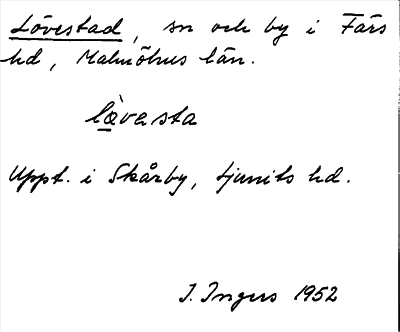 Lövestad, sn och by i Färs
hd, Malmöhus län.
lø̀vasta
Uppt. i Skårby, Ljunits hd.
I. Ingers 1952